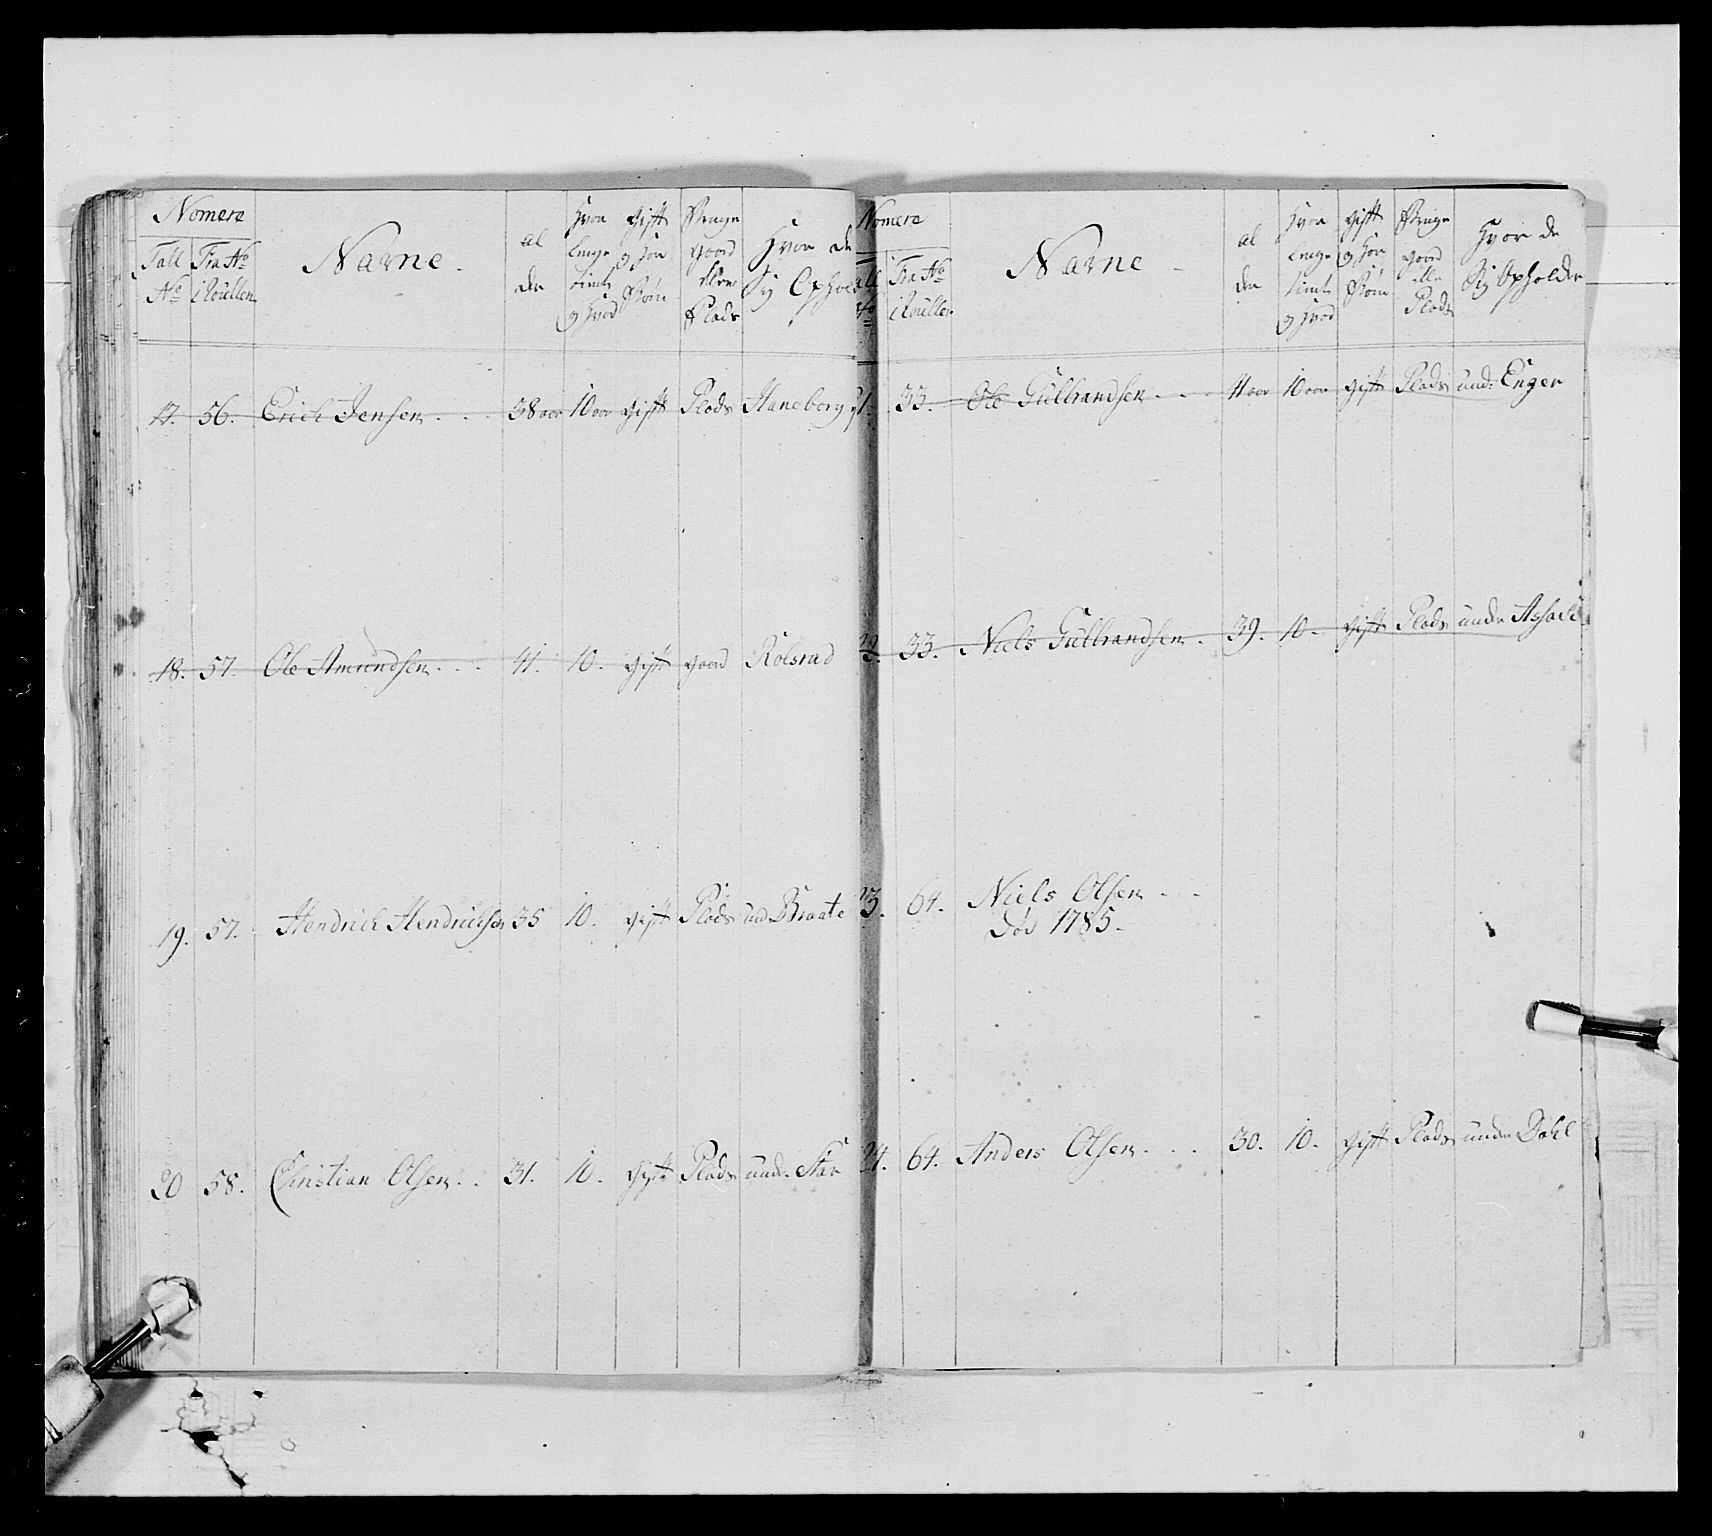 Nomere
Tall No
Fra No i Roullen
Navne
al der
Hvor lenge tient og Hvad
gift og Hor Børn
Bruge gaard Eller Plads
Hvor de Sig Ophol
17. 56. Erich Jensen 38 aar 10 aar gift Plads Haneborg
18. 57. Ole Amundsen 41. 10. gift gaard Rolsrud
19. 57. Hendrich Hendrichsen 35 10. gift Plads und Braate
20 58. Christian Olsen 31. 10. gift Plads und: Star
Nomere
Fra No i Roullen
Navne
al der
Hvor lenge tient og Hvad
gift og Hor Børn
Bruge gaard Elle Plads
Hvor de Sig Opholder
21. 33. Ole Gulbrandsen 41 aar 10 aar gift Plads und: Enger
22. 33. Niels Gulbrandsen 39. 10. gift Plads under
23. 64. Niels Olsen
Død 1785
24. 64. Anders Olsen 30. 10. gift Plads under Dahl